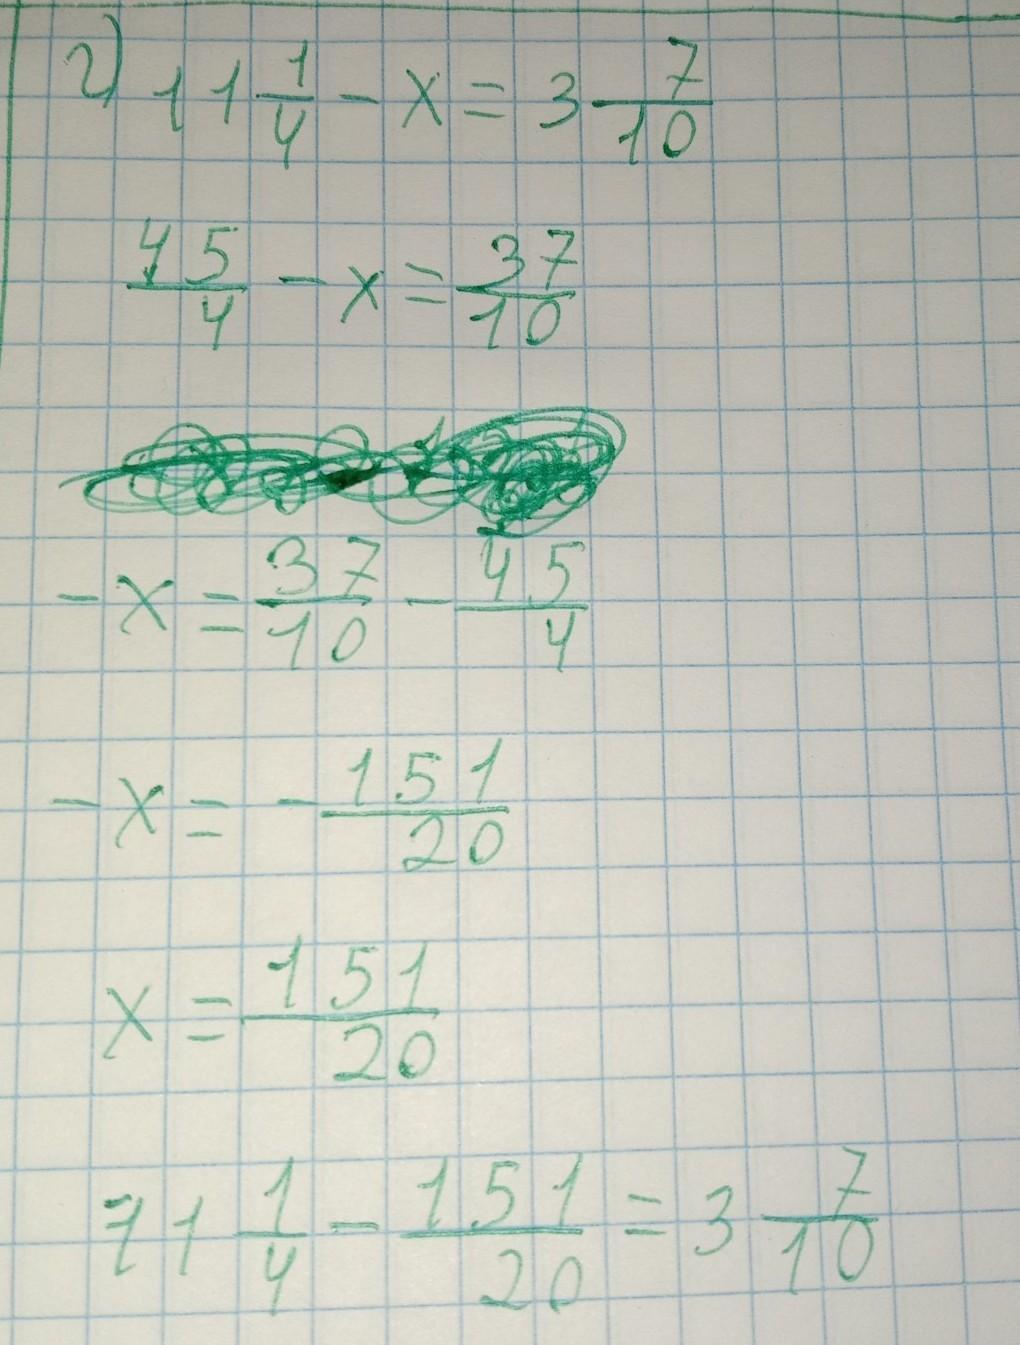 г) 11 1/4 - x = 3 7/10
45/4 - x = 37/10
-x = 37/10 - 45/4
-x = -151/20
x = 151/20
11 1/4 - 151/20 = 3 7/10